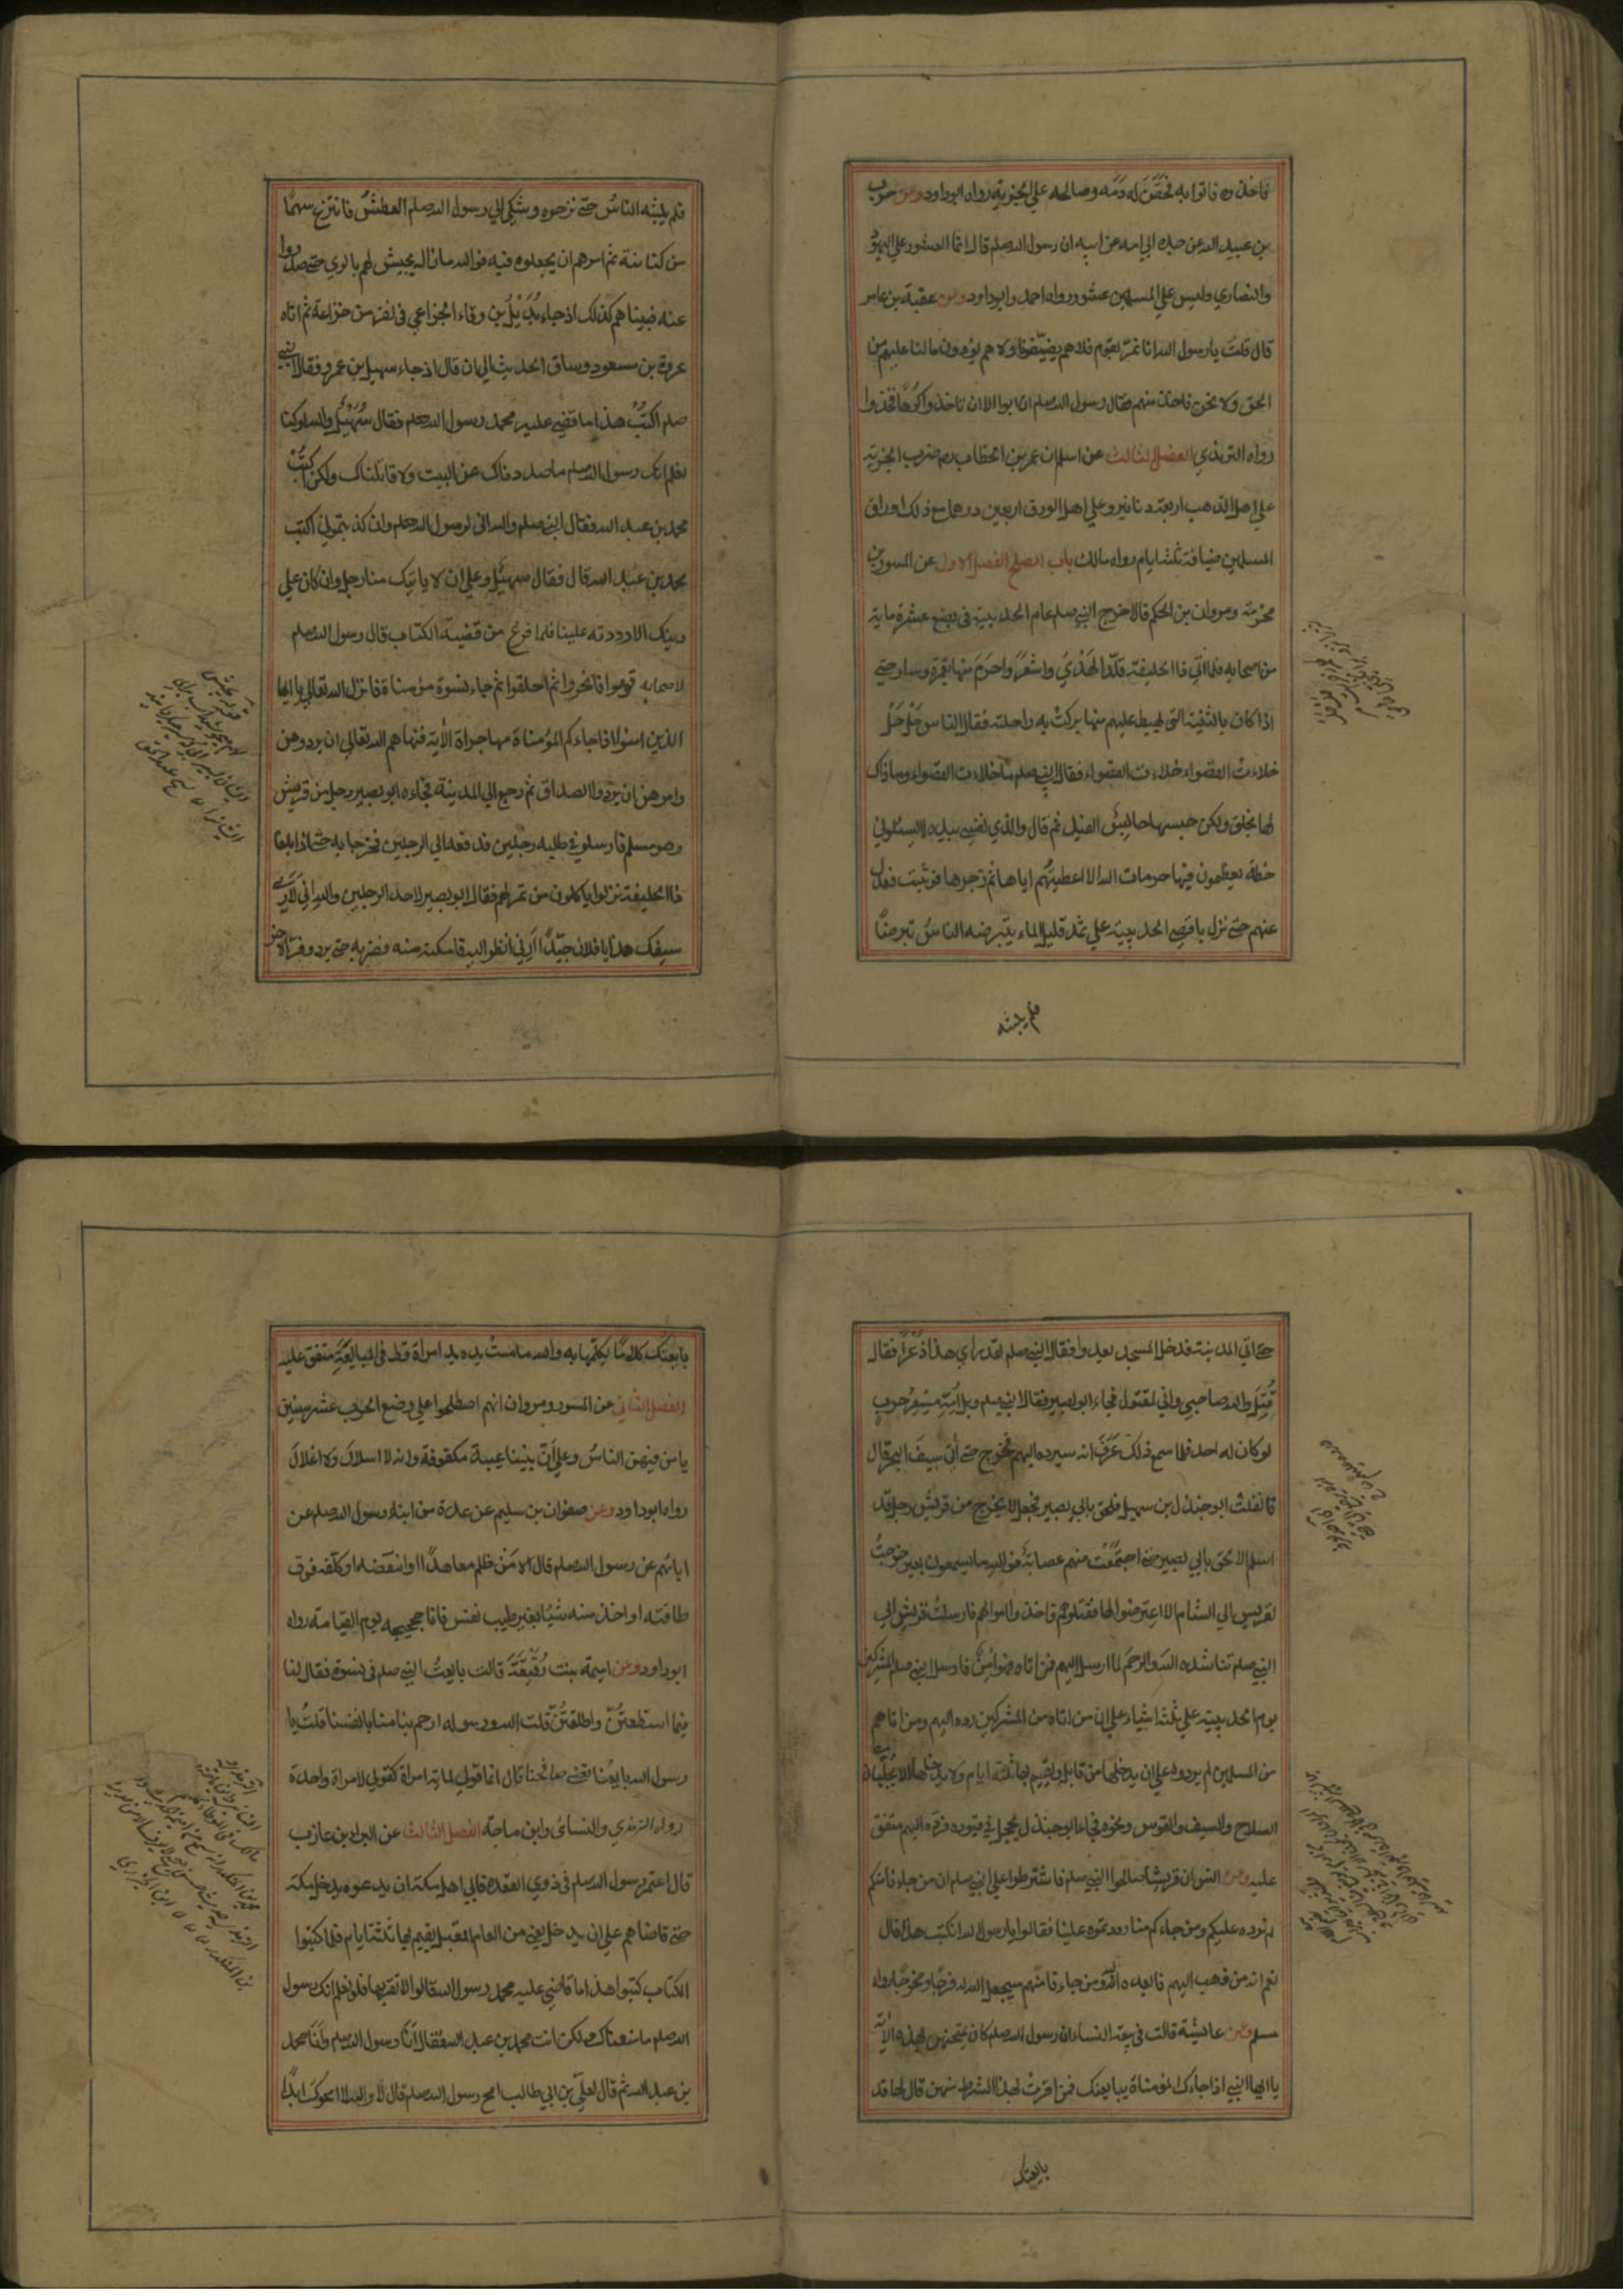 فاخذوه فاتوا به فحقن له دمه وصالحه علي الجزية رواه ابوداود وعن حرب
بن عبيد الله عن جده ابي امه عن ابيه ان رسول الله صلم قال انما العشور علي اليهود
والنصاري وليس علي المسلمين عشور رواه احمد وابوداود وعن عقبة بن عامر
قال قلت يا رسول الله انا نمر بقوم فلا هم يضيفونا ولا هم يؤدون مالنا عليهم من
الحق ولا نحن ناخذ منهم فقال رسول الله صلم ان ابوا الا ان تاخذوا كرها فخذوا
رواه الترمذي الفصل الثالث عن اسلم ان عمر بن الخطاب رضه ضرب الجزية
علي اهل الذهب اربعة دنانير وعلي اهل الورق اربعين درهما مع ذلك ارزاق
المسلمين ضيافة ثلثة ايام رواه مالك باب الصلح الفصل الاول عن المسور بن
مخرمة ومروان بن الحكم قالا خرج النبي صلم عام الحديبية في بضع عشرة ماية
من اصحابه فلما اتي ذا الحليفة قلد الهدي واشعر واحرم منها بعمرة وسار حتي
اذا كان بالثنية التي يهبط عليهم منها بركت به راحلته فقال الناس حل حل
خلاءت القصواء خلاءت القصواء فقال النبي صلم ما خلاءت القصواء وما ذاك
لها بخلق ولكن حبسها حابس الفيل ثم قال والذي نفسي بيده لا يسئلوني
خطة يعظمون فيها حرمات الله الا اعطيتهم اياها ثم زجرها فوثبت فعدل
عنهم حتي نزل باقصي الحديبية علي ثمد قليل الماء يتبرضه الناس تبرضا
فلم يلبثه
فلم يلبثه الناس حتي نزحوه وشكي الي رسول الله صلم العطش فانتزع سهما
من كنانته ثم امرهم ان يجعلوه فيه فوالله ما زال يجيش لهم بالري حتي صدروا
عنه فبينا هم كذلك اذ جاء بديل بن ورقاء الخزاعي في نفر من خزاعة ثم اتاه
عروة بن مسعود وساق الحديث الي ان قال اذ جاء سهيل بن عمرو فقال النبي
صلم اكتب هذا ما قضي عليه محمد رسول الله صلم فقال سهيل والله لو كنا
نعلم انك رسول الله صلم ما صددناك عن البيت ولا قاتلناك ولكن اكتب
محمد بن عبد الله فقال النبي صلم والله اني لرسول الله صلم وان كذبتموني اكتب
محمد بن عبد الله قال فقال سهيل وعلي ان لا ياتيك منا رجل وان كان علي
دينك الا رددته علينا فلما فرغ من قضية الكتاب قال رسول الله صلم
لاصحابه قوموا فانحروا ثم احلقوا ثم جاء نسوة مؤمناة فانزل الله تعالي يا ايها
الذين امنوا اذا جاءكم المؤمناة مهاجراة الأية فنهاهم الله تعالي ان يردوهن
وامرهن ان يردوا الصداق ثم رجع الي المدينة فجاءه ابو بصير رجل من قريش
وهو مسلم فارسلوا في طلبه رجلين فدفعه الي الرجلين فخرجا به حتي اذا بلغا
ذا الحليفة نزلوا ياكلون من تمر لهم فقال ابو بصير لاحد الرجلين والله اني لأري
سيفك هذا يا فلان جيدا ارني انظر اليه فامكنه منه فضربه حتي برد وفر الاخر
حتي اتي المدينة فدخل المسجد يعدوا فقال النبي صلم لقد راي هذا ذعرا فقال
قتل والله صاحبي واني لمقتول فجاء ابو بصير فقال النبي صلم ويل امه مسعر حرب
لو كان له احد فلما سمع ذلك عرف انه سيرده اليهم فخرج حتي أتي سيف البحر قال
وانفلت ابو جندل بن سهيل فلحق بابي بصير فجعل لا يخرج من قريش رجل قد
اسلم الا لحق بابي بصير حتي اجتمعت منهم عصابة فوالله ما يسمعون بعير خرجت
لقريس الي الشام الا اعترضوا لها فقتلوهم واخذوا اموالهم فارسلت قريش الي
النبي صلم تناشده الله والرحم لما ارسل اليهم فمن اتاه فهو امن فارسل النبي صلم المشركين
يوم الحديبية علي ثلثة اشياء علي ان من اتاه من المشركين رده اليهم ومن اتاهم
من المسلمين لم يردوه وعلي ان يدخلها من قابل ويقيم بها ثلثة ايام ولا يدخلها الا بجلبان
السلاح والسيف والقوس ونحوه فجاء ابو جندل يحجل في قيوده فرده اليهم متفق
عليه وعن انس ان قريشا صالحوا النبي صلم فاشترطوا علي النبي صلم ان من جاءنا منكم
لم نرده عليكم ومن جاءكم منا رددتموه علينا فقالوا يا رسول الله انكتب هذا قال
نعم انه من ذهب اليهم فابعده الله ومن جاءنا منهم سيجعل الله له فرجا ومخرجا رواه
مسلم وعن عائشة قالت في بيعة النساء ان رسول الله صلم كان يمتحنهن بهذه الأية
يا ايها النبي اذا جاءك المؤمناة يبايعنك فمن اقرت بهذا الشرط منهن قال لها قد
بايعتك
بايعتك كلاما يكلمها به والله ما مست يده يد امراة قط في المبايعة متفق عليه
الفصل الثاني عن المسور ومروان انهم اصطلحوا علي وضع الحرب عشر سنين
يامن فيهن الناس وعلي أن بيننا عيبة مكفوفة وانه لا اسلال ولا اغلال
رواه ابوداود وعن صفوان بن سليم عن عدة من ابناء رسول الله صلم عن
ابائهم عن رسول الله صلم قال الا من ظلم معاهدا او انتقضه او كلفه فوق
طاقته او اخذ منه شيئا بغير طيب نفس فانا حجيجه يوم القيامة رواه
ابوداود وعن اميمة بنت رقيقة قالت بايعت النبي صلم في نسوة فقال لنا
فيما استطعتن واطلقتن قلت الله ورسوله ارحم بنا منا بانفسنا قلت يا
رسول الله بايعنا تعني صافحنا قال انما قولي لماية امراة كقولي لامراة واحدة
رواه الترمذي والنسائي وابن ماجة الفصل الثالث عن البراء بن عازب
قال اعتمر رسول الله صلم في ذوي القعدة فابي اهل مكة ان يدعوه يدخل مكة
حتي قاضاهم علي ان يدخل يعني من العام المقبل يقيم بها ثلثة ايام فلما كتبوا
الكتاب كتبوا هذا ما قاضي عليه محمد رسول الله قالوا لا نقر بها فلو نعلم انك رسول
الله صلم ما منعناك ولكن انت محمد بن عبد الله فقال أنا رسول الله صلم وأنا محمد
بن عبد الله ثم قال لعلي بن ابي طالب امح رسول الله صلم قال لا والله لا امحوك ابدا